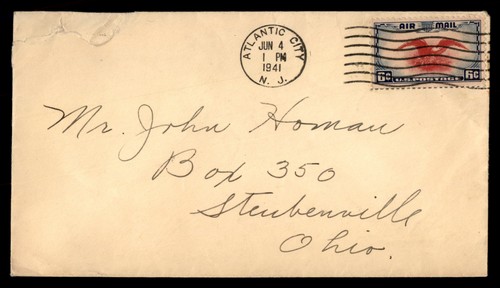 ATLANTIC CITY
JUN 4
1 PM
1941
N. J.
AIR MAIL
6c U.S. POSTAGE 6c
Mr. John Homan
Box 350
Steubenville
Ohio.